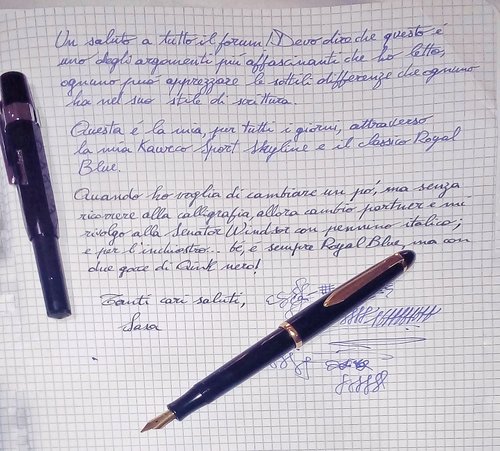 Un saluto a tutto il forum! Devo dire che questo é
uno degli argomenti piu affascinanti che ho letto,
ognuno può apprezzare le sottili differenze che ognuno
ha nel suo stile di scrittura.
Questa é la mia, per tutti i giorni, attraverso
la mia Kaweco Sport Skyline e il classico Royal
Blue.
Quando ho voglia di cambiare un pó, ma senza
ricorrere alla calligrafia, allora cambio partner e mi
rivolgo alla Senator Windsor con pennino italico;
e per l'inchiostro.. be, é sempre Royal Blue, ma con
due gocce di Quink nero!
Tanti cari saluti,
Sasa